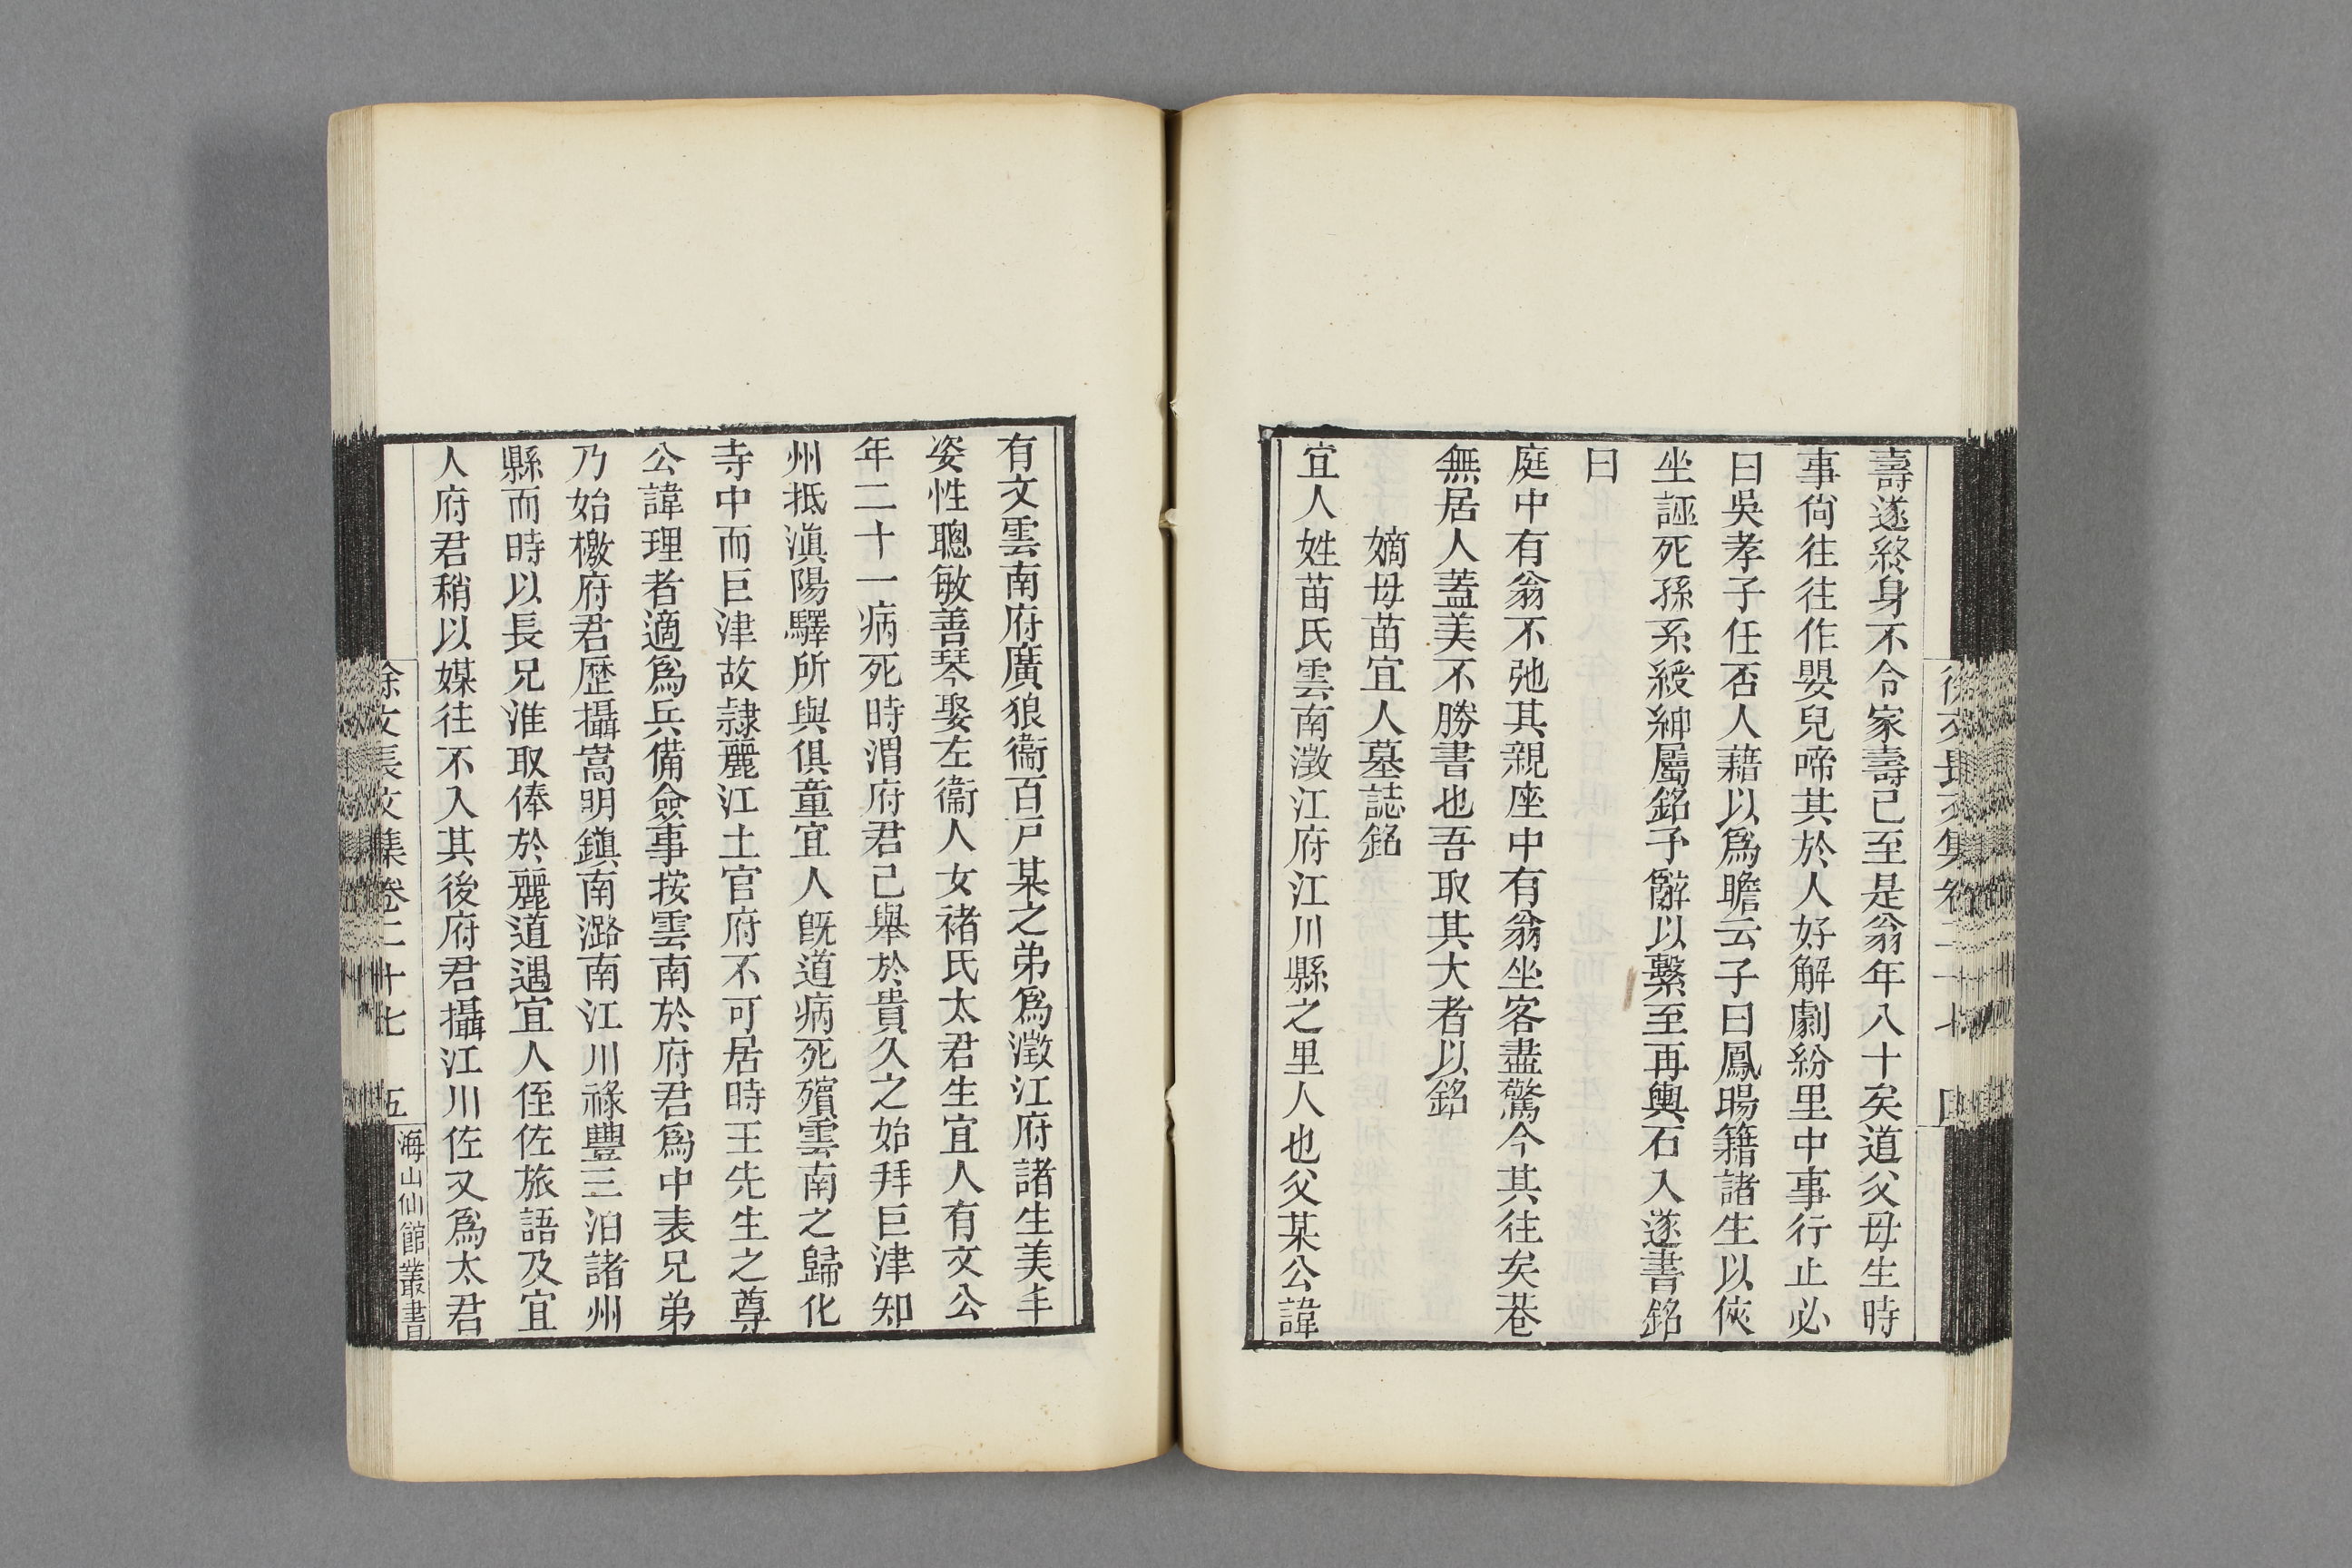 壽遂終身不令家壽已至是翁年八十矣道父母生時
事尙往往作嬰兒啼其於人好解劇紛里中事行止必
曰吳孝子任否人藉以爲瞻云子曰鳳暘籍諸生以俠
坐誣死孫系綬紳屬銘予辭以繫至再輿石入遂書銘
曰
庭中有翁不弛其親座中有翁坐客盡驚今其往矣巷
無居人蓋美不勝書也吾取其大者以銘
嫡母苗宜人墓誌銘
宜人姓苗氏雲南澂江府江川縣之里人也父某公諱
有文雲南府廣狼衞百戶某之弟爲澂江府諸生美丰
姿性聰敏善琴娶左衞人女褚氏太君生宜人有文公
年二十一病死時渭府君已舉於貴久之始拜巨津知
州抵滇陽驛所與俱童宜人旣道病死殯雲南之歸化
寺中而巨津故隷麗江土官府不可居時王先生之尊
公諱理者適爲兵備僉事按雲南於府君爲中表兄弟
乃始檄府君歷攝嵩明鎭南潞南江川祿豐三泊諸州
縣而時以長兄淮取俸於麗道遇宜人侄佐旅語及宜
人府君稍以媒往不入其後府君攝江川佐又爲太君
徐文長文集卷二十七 五 海山仙館叢書